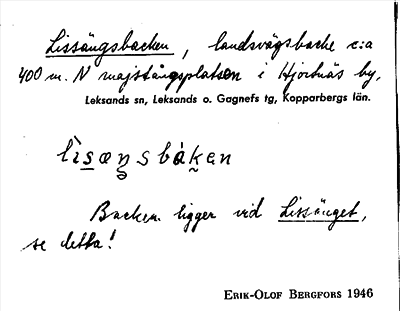 Lissängsbacken, landsvägsbacke c:a
400 m. N majstångsplatsen i Hjortnäs by.
Leksands sn, Leksands o. Gagnefs tg, Kopparbergs län.
lìsæŋsbákæn
Backen ligger vid Lissänget,
se detta!
ERIK-OLOF BERGFORS 1946